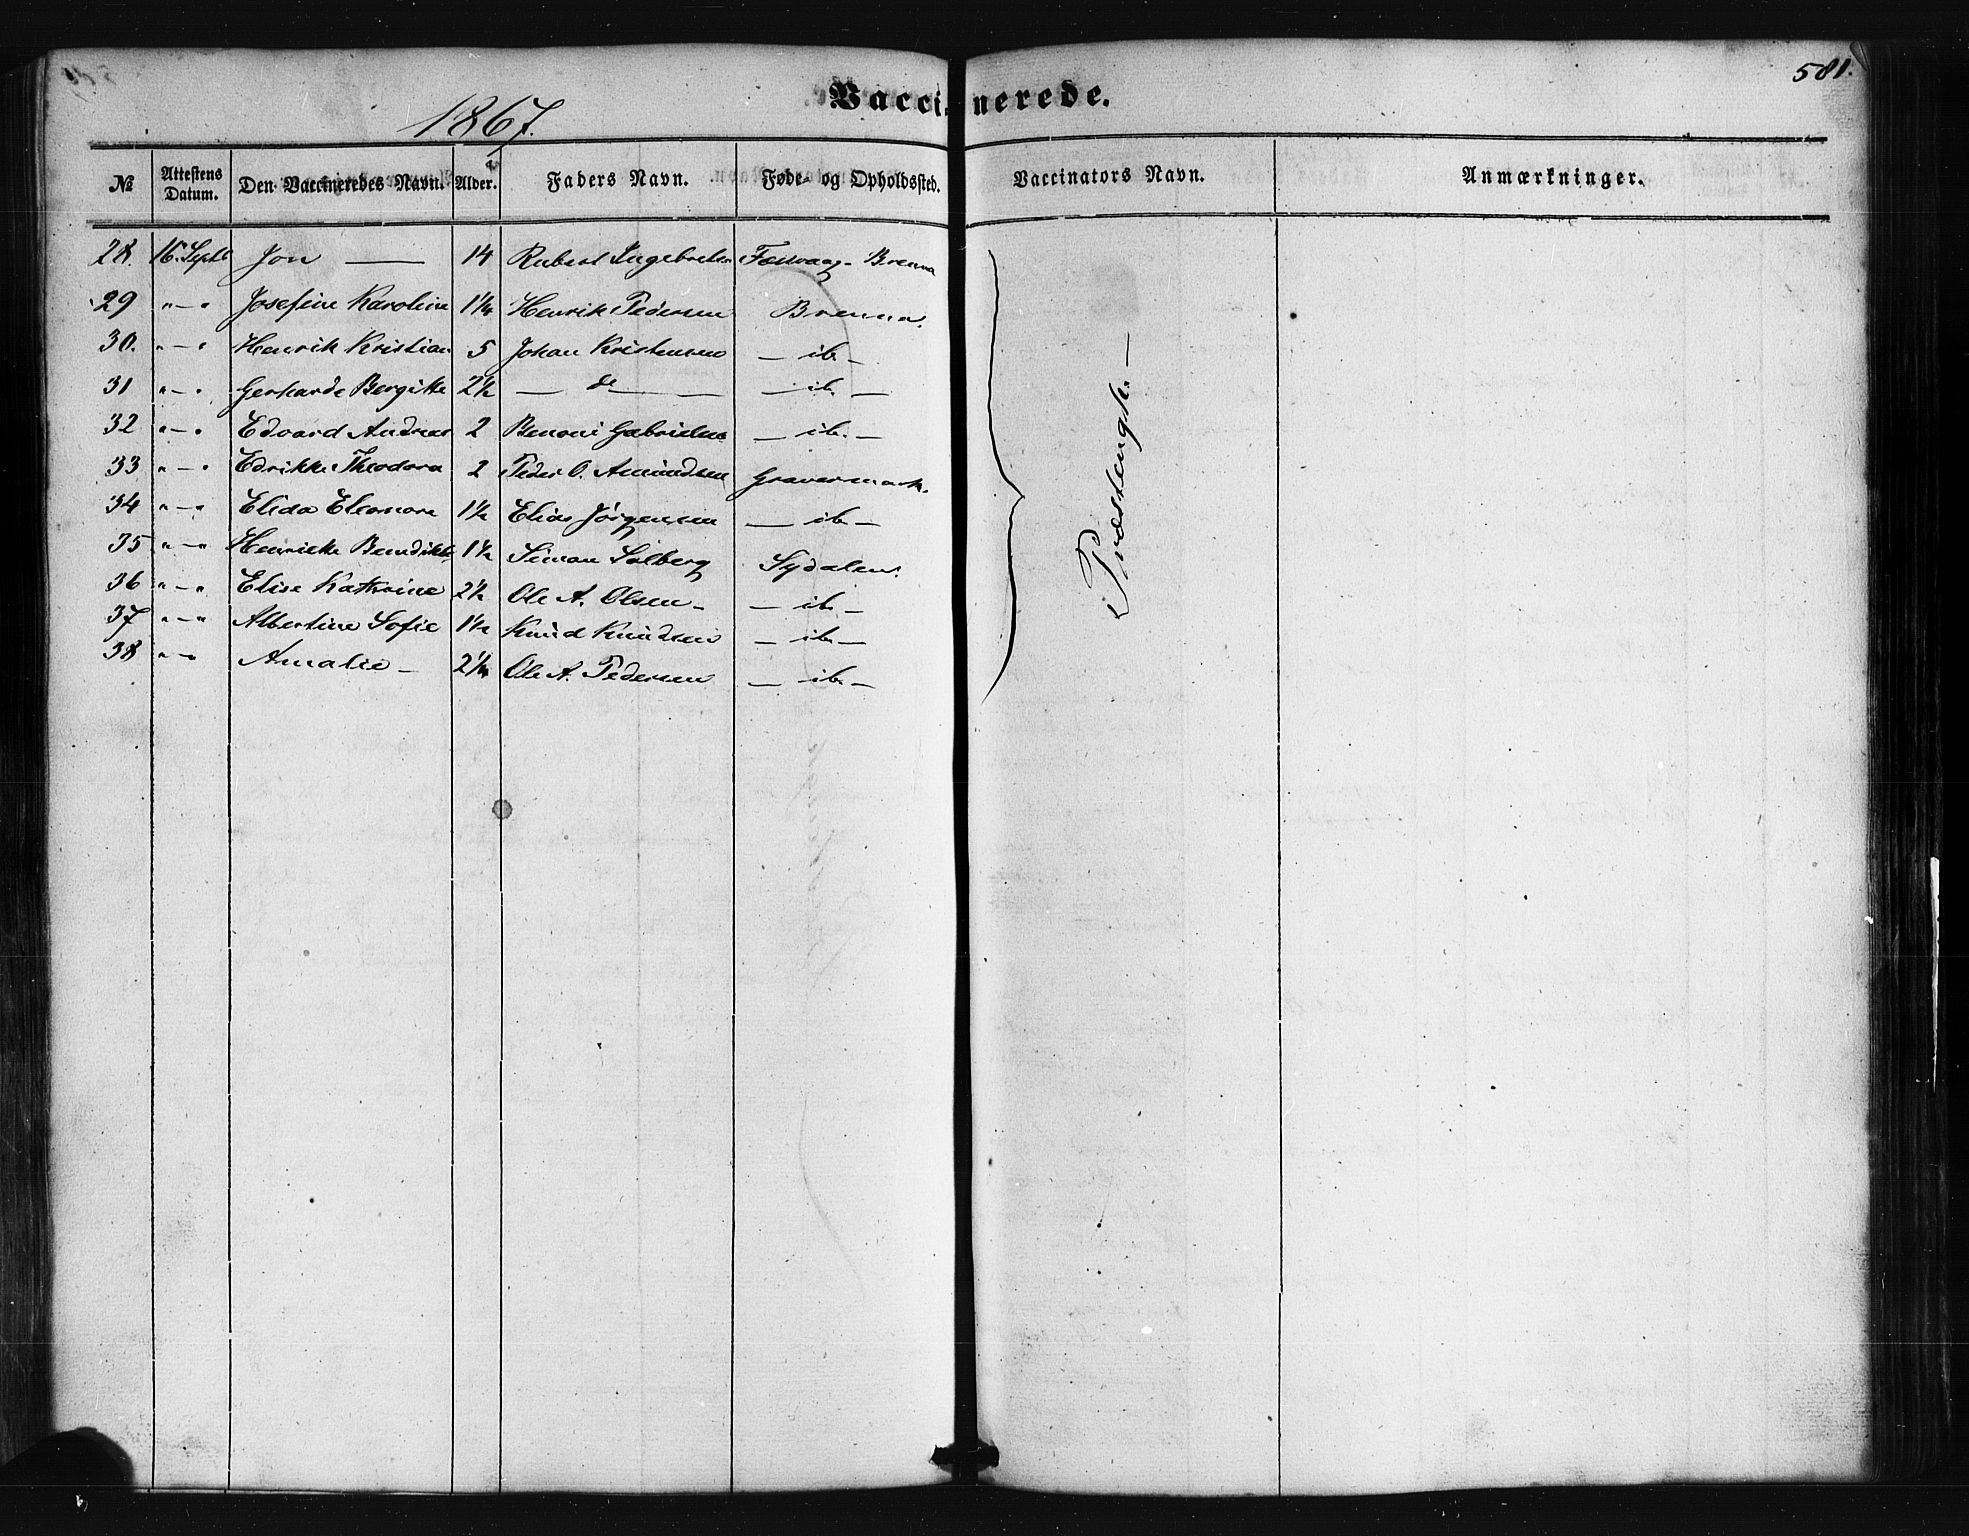 581.
Vaccinerede.
1867.
№ Attestens Datum. Den Vaccineredes Navn. Alder. Faders Navn. Føde- og Opholdssted. Vaccinators Navn. Anmærkninger.
28. 16 Septb Jon — 14 Rubert Ingebretsen Brenna
29 " — " Josefine Karoline 1¼ Henrik Pedersen Brenna.
30. " — " Henrik Kristian 5 Johan Kristensen — ib —
31 " — " Gerharde Bergitte 2½ — do — — ib. —
32 " — " Edvard Andreas 2 Benoni Gabrielsen — ib. —
33 " — " Edrikke Theodora 2 Peder O. Amundsen Gravermark.
34 " — " Elida Eleonora 1½ Elias Jørgensen — ib —
35 " — " Henrikke Benedikte 1½ Simon Solberg Sydalen.
36 " — " Elise Kathrine 2½ Ole A. Olsen — — ib —
37 " — " Albertine Sofie 1½ Knud Knudsen — ib —
38 " — " Amalie — Ole A. Pedersen — ib —